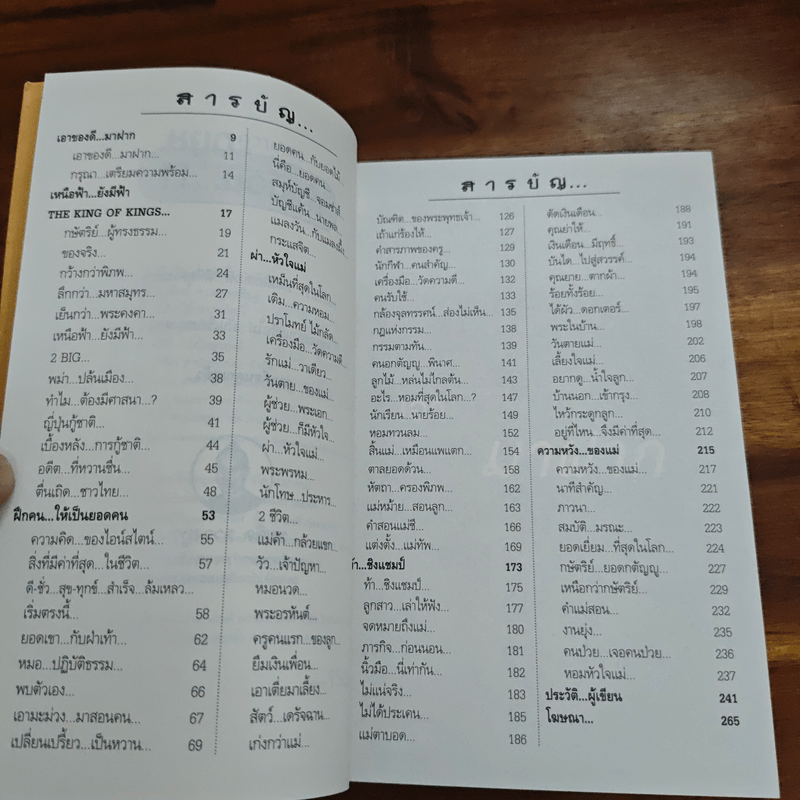 สารบัญ...
เอาของดี...มาฝาก 9
เอาของดี...มาฝาก... 11
กรุณา...เตรียมความพร้อม... 14
เหนือฟ้า...ยังมีฟ้า
THE KING OF KINGS... 17
กษัตริย์...ผู้ทรงธรรม... 19
ของจริง... 21
กว้างกว่าพิภพ... 24
ลึกกว่า...มหาสมุทร... 27
เย็นกว่า...พระคงคา... 31
เหนือฟ้า...ยังมีฟ้า... 33
2 BIG... 35
พม่า...ปล้นเมือง... 38
ทำไม...ต้องมีศาสนา...? 39
ญี่ปุ่นกู้ชาติ... 41
เบื้องหลัง...การกู้ชาติ... 44
อดีต...ที่หวานชื่น... 45
ตื่นเถิด...ชาวไทย... 48
ฝึกคน...ให้เป็นยอดคน 53
ความคิด...ของไอน์สไตน์... 55
สิ่งที่มีค่าที่สุด...ในชีวิต... 57
ดี-ชั่ว...สุข-ทุกข์...สำเร็จ...ล้มเหลว...
เริ่มตรงนี้... 58
ยอดเขา...กับฝ่าเท้า... 62
หมอ...ปฏิบัติธรรม... 64
พบตัวเอง... 66
เอามะม่วง...มาสอนคน... 67
เปลี่ยนเปรี้ยว...เป็นหวาน... 69
ยอดคน...กับยอดไม้
นี่คือ...ยอดคน...
สมุห์บัญชี...จอมซ่าส์
บัญชีแค้น...นายพล
แมลงวัน...กับแมลงผึ้ง
กระแสจิต...
ผ่า...หัวใจแม่
เหม็นที่สุดในโลก...
เติม...ความหอม...
ปราโมทย์ ไม้กลัด...
เครื่องมือ...วัดความดี
รักแม่...วาเดียว...
วันตาย...ของแม่...
ผู้ช่วย...พระเอก...
ผู้ช่วย...ก็มีหัวใจ...
ผ่า...หัวใจแม่...
พระพรหม...
นักโทษ...ประหาร...
2 ชีวิต...
แม่ค้า...กล้วยแขก...
วัว...เจ้าปัญหา...
หมอนวด...
พระอรหันต์...
ครูคนแรก...ของลูก...
ยืมเงินเพื่อน...
เอาเตี่ยมาเลี้ยง...
สัตว์...เดรัจฉาน...
เก่งกว่าแม่...
สารบัญ...
บัณฑิต...ของพระพุทธเจ้า... 126
เถ้าแก่ร้องไห้... 127
คำสารภาพของครู... 129
นักกีฬา...คนสำคัญ... 130
เครื่องมือ...วัดความดี... 132
คนรับใช้... 133
กล้องจุลทรรศน์...ส่องไม่เห็น... 135
กฎแห่งกรรม... 138
กรรมตามทัน... 139
คนอกตัญญู...พินาศ... 141
ลูกไม้...หล่นไม่ไกลต้น... 143
อะไร...หอมที่สุดในโลก...? 147
นักเรียน...นายร้อย... 149
หอมทวนลม... 152
สิ้นแม่...เหมือนแพแตก... 154
ตาลยอดด้วน... 158
หัตถา...ครองพิภพ... 162
แม่หม้าย...สอนลูก... 163
คำสอนแม่ชี... 166
แต่งตั้ง...แม่ทัพ... 169
ท้า...ชิงแชมป์ 173
ท้า...ชิงแชมป์... 175
ลูกสาว...เล่าให้ฟัง... 177
จดหมายถึงแม่... 180
ภารกิจ...ก่อนนอน... 181
นิ้วมือ...นี่เท่ากัน... 182
ไม่แน่จริง... 183
ไม่ได้ประเคน... 185
แม่ตาบอด... 186
ตัดเงินเดือน... 188
คุณย่าให้... 191
เงินเดือน...มีฤทธิ์... 193
บันได...ไปสู่สวรรค์... 194
คุณยาย...ตากผ้า... 194
ร้อยทั้งร้อย... 195
ได้ผัว...ดอกเตอร์... 197
พระในบ้าน... 198
วันตายแม่... 202
เลี้ยงใจแม่... 206
อยากดู...น้ำใจลูก... 207
บ้านนอก...เข้ากรุง... 208
ไหว้กระดูกลูก... 210
อยู่ที่ไหน...จึงมีค่าที่สุด... 212
ความหวัง...ของแม่ 215
ความหวัง...ของแม่... 217
นาทีสำคัญ... 221
ภาวนา... 222
สมบัติ...มรณะ... 223
ยอดเยี่ยม...ที่สุดในโลก... 224
กษัตริย์...ยอดกตัญญู... 227
เหนือกว่ากษัตริย์... 229
คำแม่สอน... 232
งานยุ่ง... 235
คนป่วย...เจอคนป่วย... 236
หอมหัวใจแม่... 237
ประวัติ...ผู้เขียน 241
โฆษณา... 265